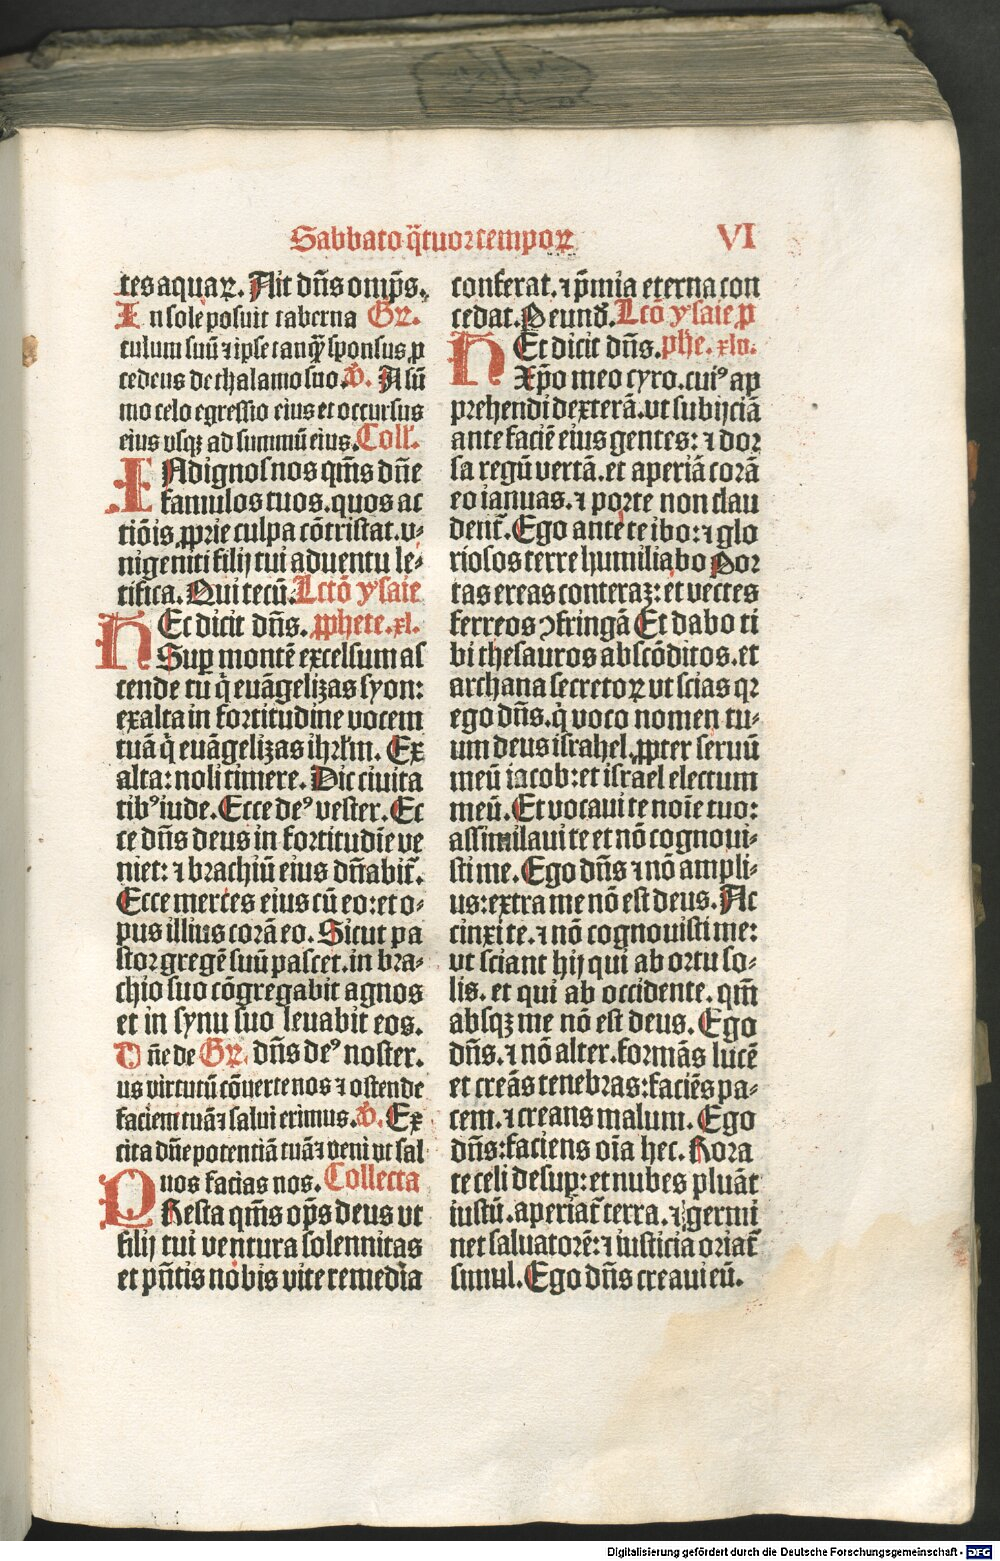 Sabbato q̄tuor tempoꝝ VI
tes aquaꝝ. Ait dn̄s omp̄s.
In sole posuit taberna Gꝝ.
culum suū ⁊ ipse tanꝙ̄ sponsus ꝓ
cedens de thalamo suo. V̄. A sū
mo celo egressio eius et occursus
eius vsqꝫ ad summū eius. Coll'.
INdignos nos qm̄s dn̄e
famulos tuos. quos ac
tiōis ꝓprie culpa cōtristat. v-
nigeniti filij tui aduentu le-
tifica. Qui tecū. Lctō ysaie
HEc dicit dn̄s. ꝓphete. xl.
Suꝑ montē excelsum as
cende tu q̄ euāgelizas syon:
exalta in fortitudine vocem
tuā q̄ euāgelizas ihrl'm. Ex
alta: noli timere. Dic ciuita
tibꝰ iude. Ecce deꝰ vester. Ec
ce dn̄s deus in fortitudīe ve
niet: ⁊ brachiū eius dn̄abit̄.
Ecce merces eius cū eo: et o-
pus illius corā eo. Sicut pa
stor gregē suū pascet. in bra-
chio suo cōgregabit agnos
et in synu suo leuabit eos.
Dn̄e de Gꝝ. dn̄s deꝰ noster.
us virtutū cōuerte nos ⁊ ostende
faciem tuā ⁊ salui erimus. V̄. Ex
cita dn̄e potentiā tuā ⁊ veni vt sal
uos facias nos. Collecta
PResta qm̄s op̄s deus vt
filij tui ventura solennitas
et pn̄tis nobis vite remedia
conferat. ⁊ p̄mia eterna con
cedat. Per eund̄. Lctō ysaie ꝓ
HEc dicit dn̄s. phe. xlv.
Xp̄o meo cyro. cuiꝰ ap
prehendi dexterā. vt subijciā
ante faciē eius gentes: ⁊ dor
sa regū vertā. et aperiā corā
eo ianuas. ⁊ porte non clau
dent̄. Ego ante te ibo: ⁊ glo
riosos terre humiliabo Por
tas ereas conteraꝫ: et vectes
ferreos ꝯfringā Et dabo ti
bi thesauros abscōditos. et
archana secretoꝝ vt scias qꝛ
ego dn̄s. q̄ voco nomen tu-
um deus israhel. ꝓpter seruū
meū iacob: et israel electum
meū. Et vocaui te noīe tuo:
assimilaui te et nō cognoui-
sti me. Ego dn̄s ⁊ nō ampli-
us: extra me nō est deus. Ac
cinxi te. ⁊ nō cognouisti me:
vt sciant hij qui ab ortu so-
lis. et qui ab occidente. qm̄
absqꝫ me nō est deus. Ego
dn̄s. ⁊ nō alter. formās lucē
et creās tenebras: faciēs pa-
cem. ⁊ creans malum. Ego
dn̄s: faciens oīa hec. Rora
te celi desuꝑ: et nubes pluāt
iustū. aperiat̄ terra. ⁊ germi
net saluatorē: ⁊ iusticia oriat̄
simul. Ego dn̄s creaui eū.
Digitalisierung gefördert durch die Deutsche Forschungsgemeinschaft - DFG